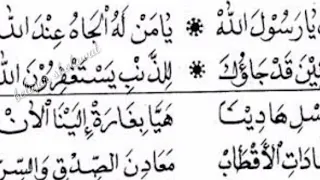 يَارَسُولَ اللهْ ❋ يَامَنْ لَهُ الْجَاهُ عِنْدَ اللهْ
قَدْ جَاؤُكَ ❋ لِلذَّنْبِ يَسْتَغْفِرُونَ اللهْ
هَادِينَا هَيَّا بِغَارَةْ إِلَيْنَا الْآنْ
الْأَقْطَابْ مَعَادِنَ الصِّدْقِ وَالسِّرّ